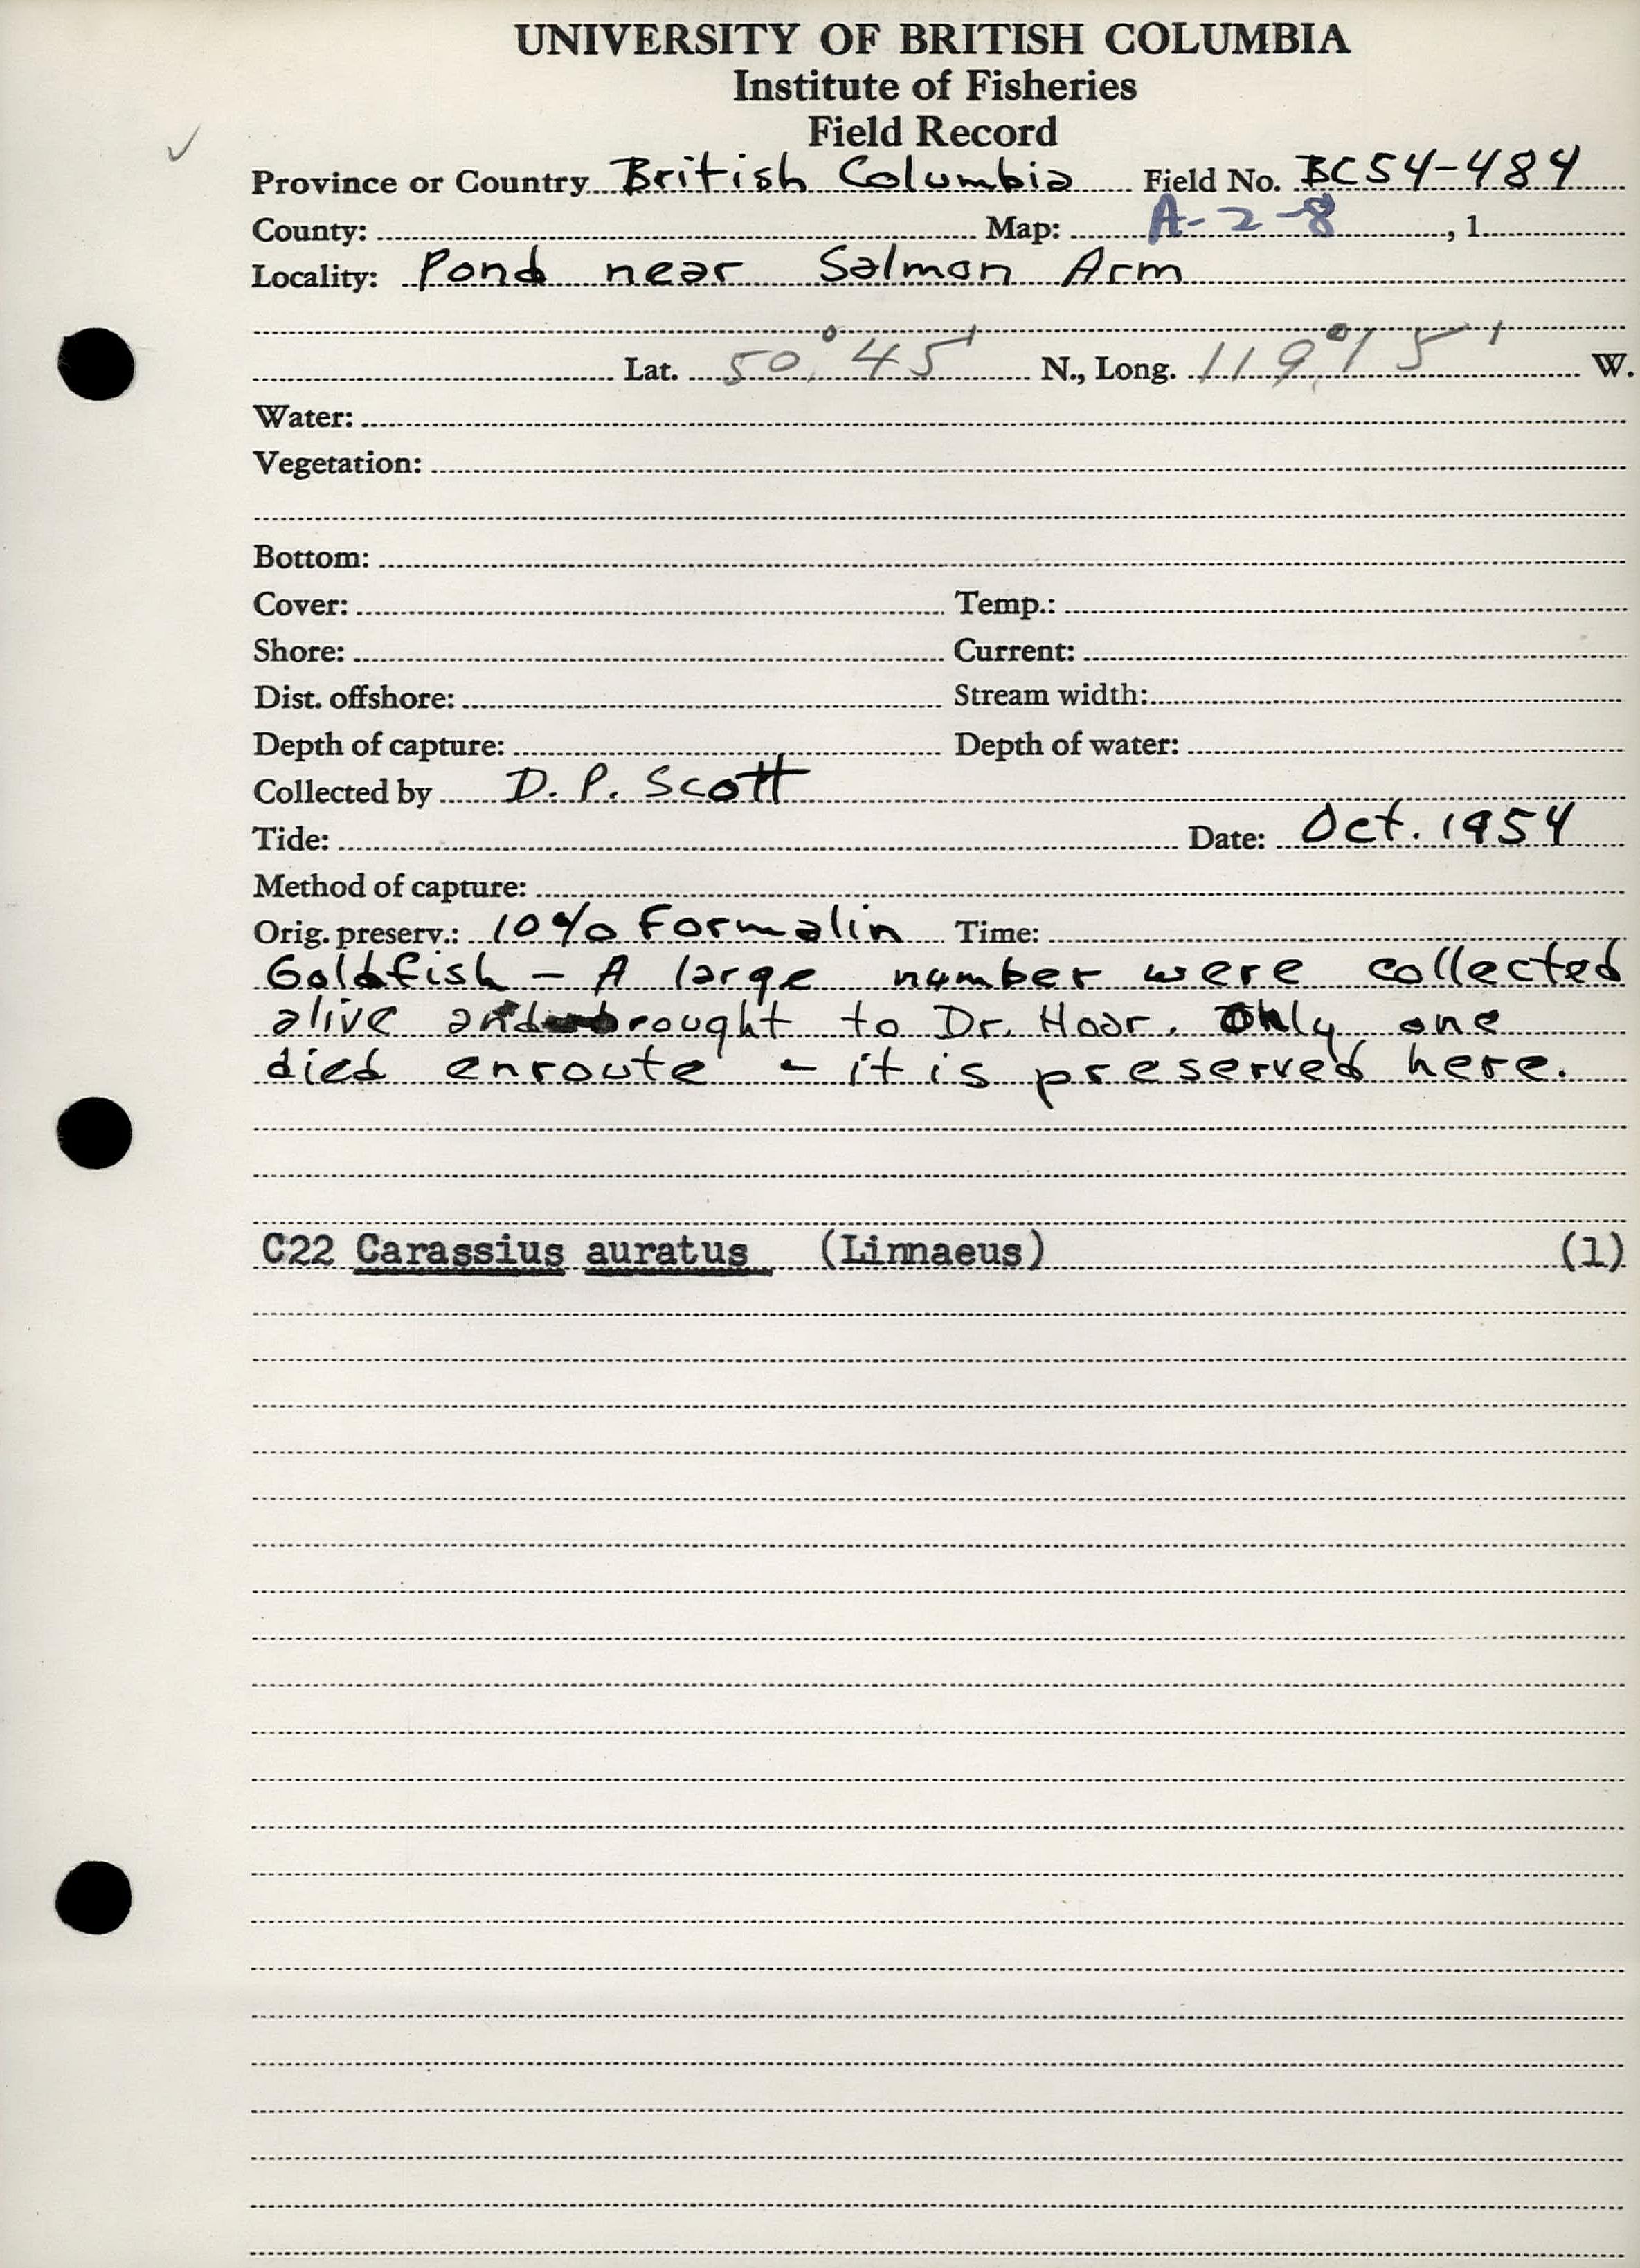 UNIVERSITY OF BRITISH COLUMBIA
Institute of Fisheries
Field Record
✓
Province or Country British Columbia Field No. BC54-484
County: Map: A-2-8, 1
Locality: Pond near Salmon Arm
Lat. 50°45' N., Long. 119°15' W.
Water:
Vegetation:
Bottom:
Cover: Temp.:
Shore: Current:
Dist. offshore: Stream width:
Depth of capture: Depth of water:
Collected by D. P. Scott
Tide: Date: Oct. 1954
Method of capture:
Orig. preserv.: 10% Formalin Time:
Goldfish - A large number were collected
alive and brought to Dr. Hoar. Only one
died enroute - it is preserved here.
C22 Carassius auratus (Linnaeus) (1)